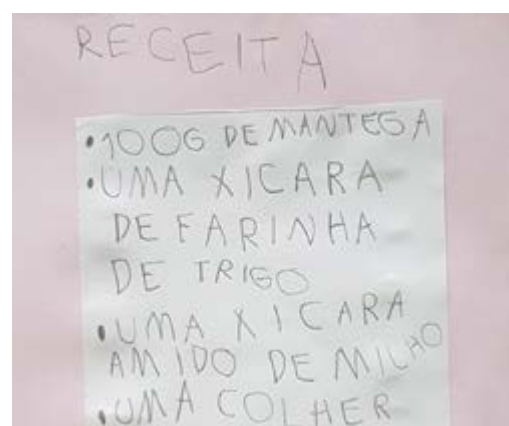 RECEITA
•100G DE MANTEGA
•UMA XICARA
DE FARINHA
DE TRIGO
•UMA XICARA
AMIDO DE MILHO
•UMA COLHER